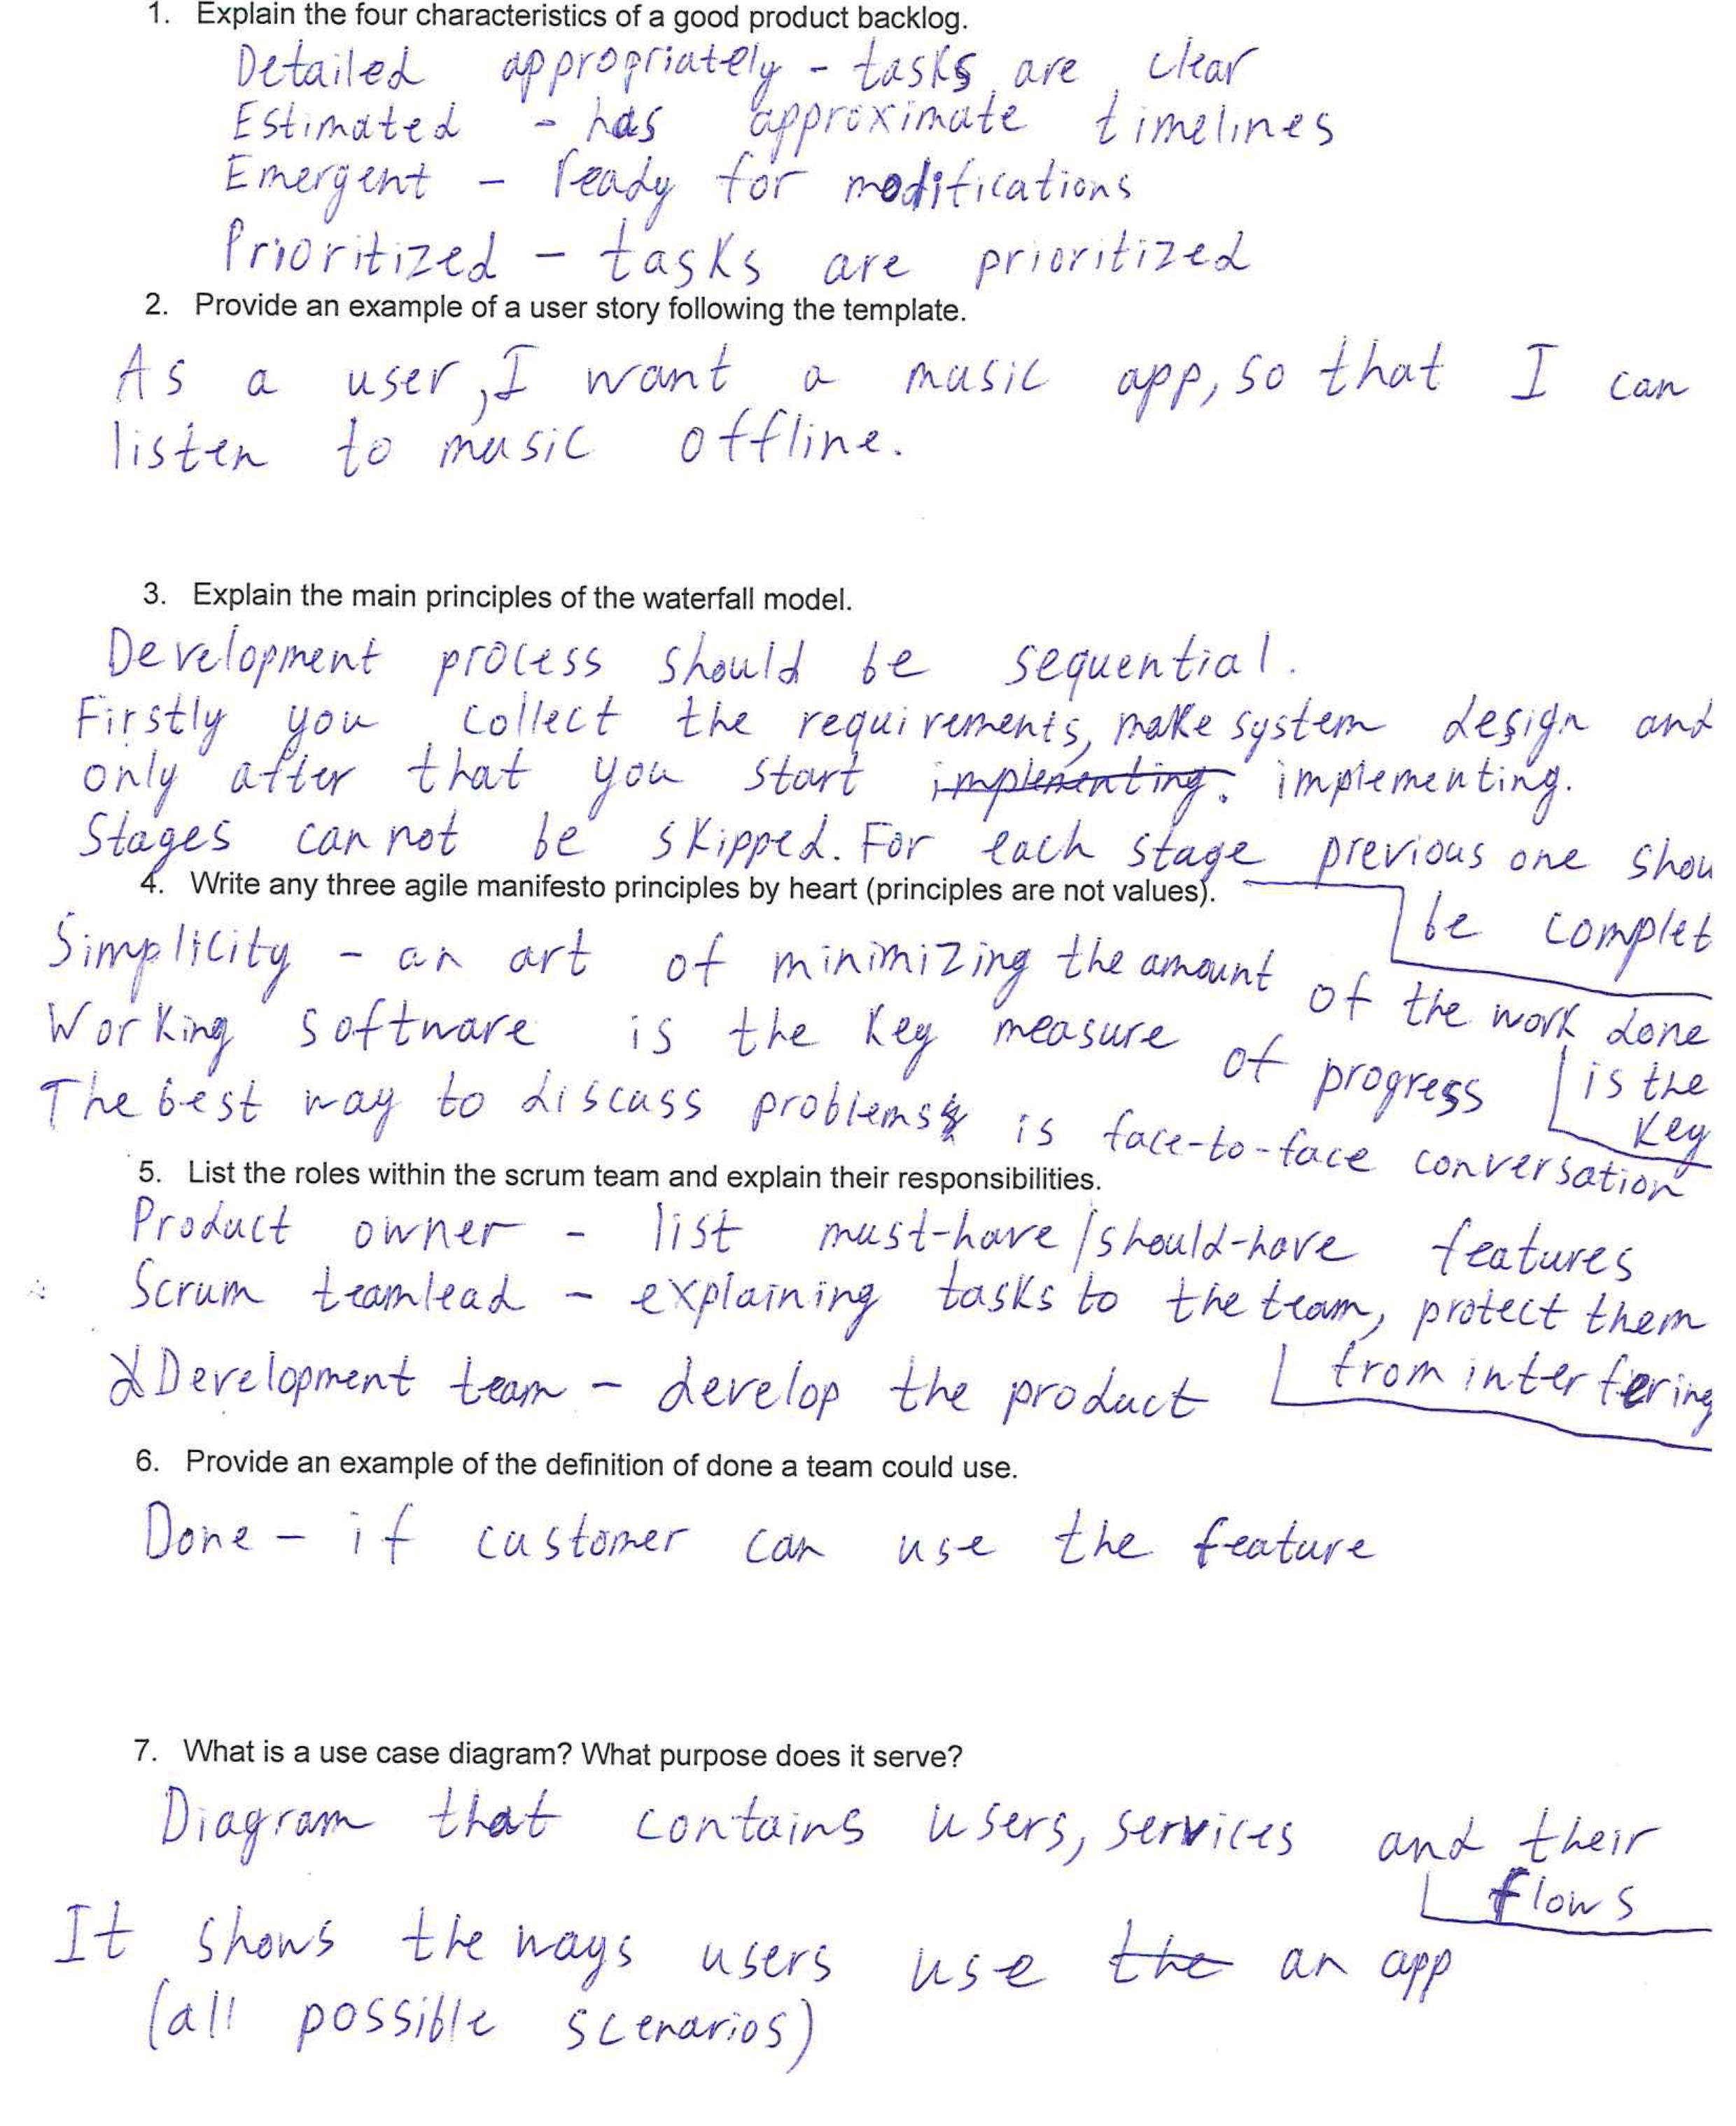 1. Explain the four characteristics of a good product backlog.
Detailed appropriately - tasks are clear
Estimated - has approximate timelines
Emergent - ready for modifications
Prioritized - tasks are prioritized
2. Provide an example of a user story following the template.
As a user, I want a music app, so that I can
listen to music offline.
3. Explain the main principles of the waterfall model.
Development process should be sequential.
Firstly you collect the requirements, make system design and
only after that you start implementing. implementing.
Stages can not be skipped. For each stage previous one shou
be complet
4. Write any three agile manifesto principles by heart (principles are not values).
Simplicity - an art of minimizing the amount of the work done
is the
key
Working software is the key measure of progress
The best way to discuss problems is face-to-face conversation
5. List the roles within the scrum team and explain their responsibilities.
Product owner - list must-have/should-have features
Scrum teamlead - explaining tasks to the team, protect them
from interfering
Development team - develop the product
6. Provide an example of the definition of done a team could use.
Done - if customer can use the feature
7. What is a use case diagram? What purpose does it serve?
Diagram that contains users, services and their
flows
It shows the ways users use the an app
(all possible scenarios)